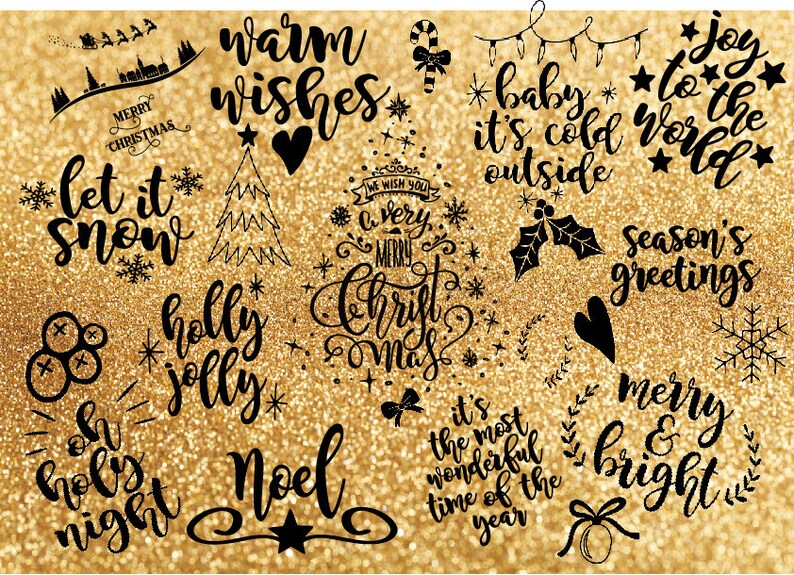 MERRY
CHRISTMAS
warm
wishes
baby
it's cold
outside
joy
to the
world
let it
snow
WE WISH YOU
a very
MERRY
Christ
mas
season's
greetings
holly
jolly
merry
&
bright
oh
holy
night
Noel
it's
the most
wonderful
time of the
year